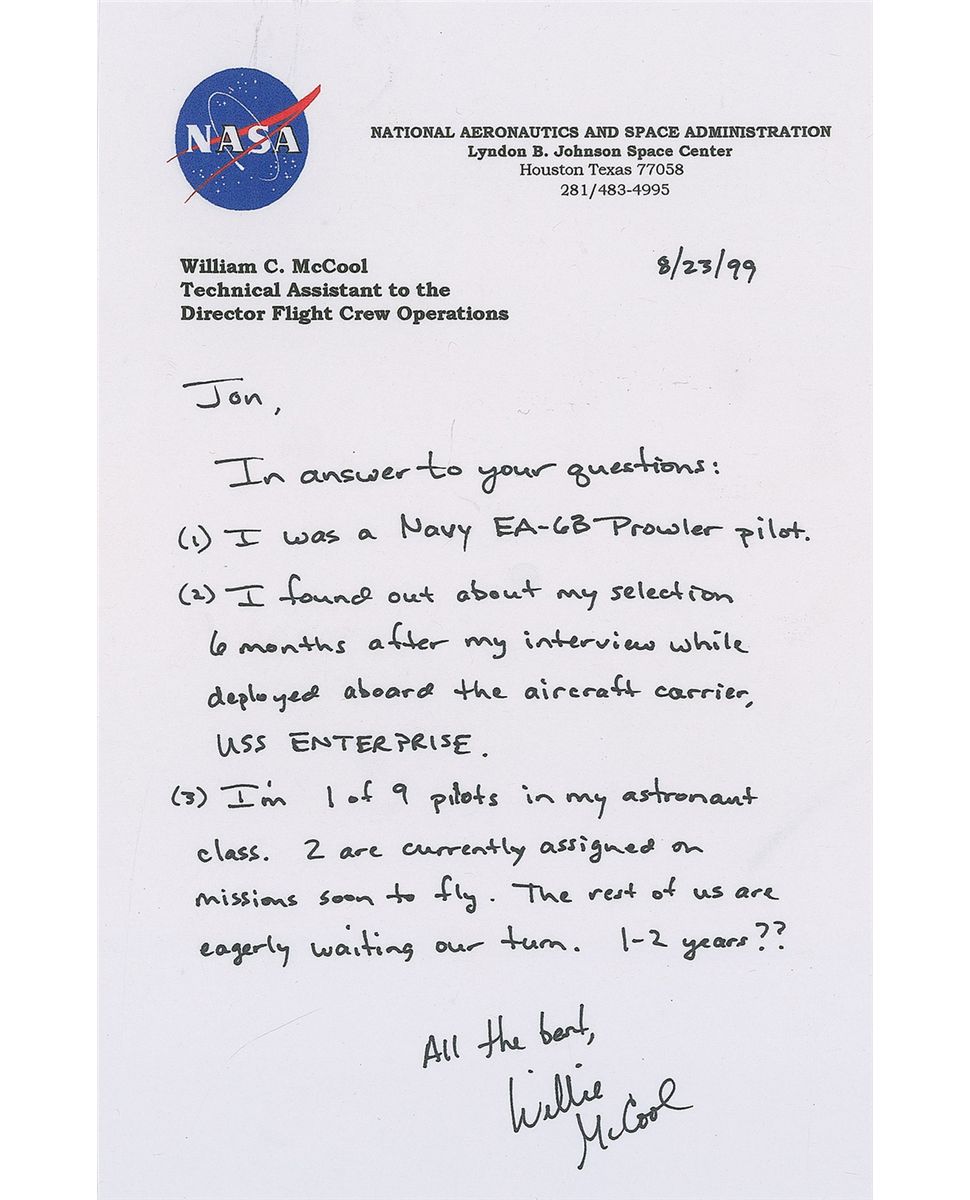 NASA
NATIONAL AERONAUTICS AND SPACE ADMINISTRATION
Lyndon B. Johnson Space Center
Houston Texas 77058
281/483-4995
William C. McCool
Technical Assistant to the
Director Flight Crew Operations
8/23/99
Jon,
In answer to your questions:
(1) I was a Navy EA-6B Prowler pilot.
(2) I found out about my selection
6 months after my interview while
deployed aboard the aircraft carrier,
USS ENTERPRISE.
(3) I'm 1 of 9 pilots in my astronaut
class. 2 are currently assigned on
missions soon to fly. The rest of us are
eagerly waiting our turn. 1-2 years??
All the best,
Willie
McCool